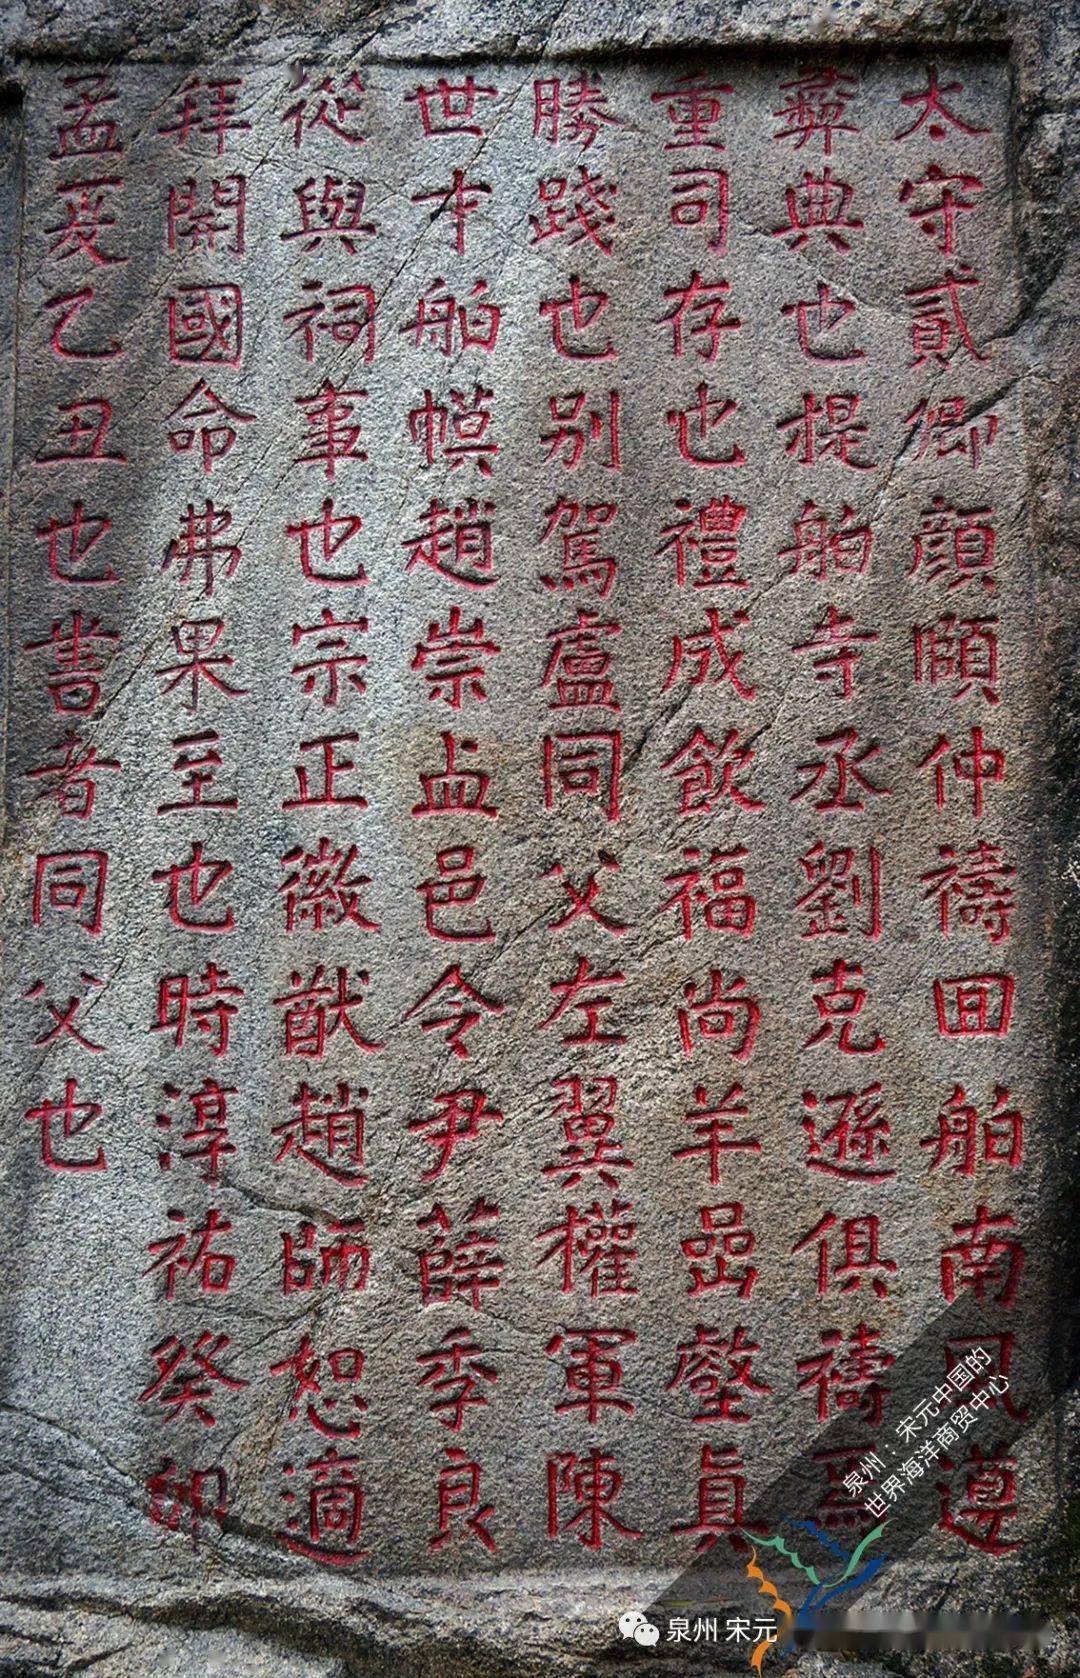 太守貳卿顏頤仲禱回舶南風遵
彝典也提舶寺丞劉克遜俱禱焉
重司存也禮成飲福尚羊嵒壑真
勝踐也别駕盧同父左翼權軍陳
世才舶幙趙崇𥁕邑令尹薛季良
從與祠事也宗正徽猷趙師恕適
拜開國命弗果至也時淳祐癸卯
孟夏乙丑也書者同父也
泉州：宋元中国的
世界海洋商贸中心
泉州 宋元